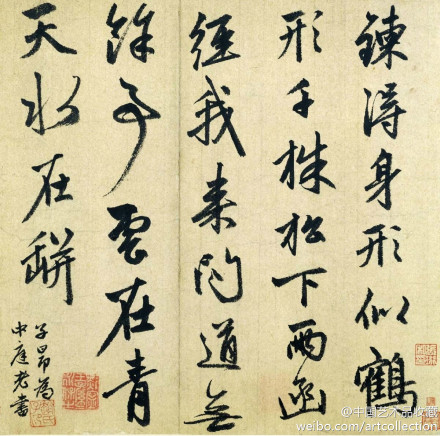 鍊得身形似鶴
形千株松下兩函
經我来問道無
餘事雲在青
天水在缾
子昂為
中庭老書
@中国艺术品收藏
weibo.com/artcollection